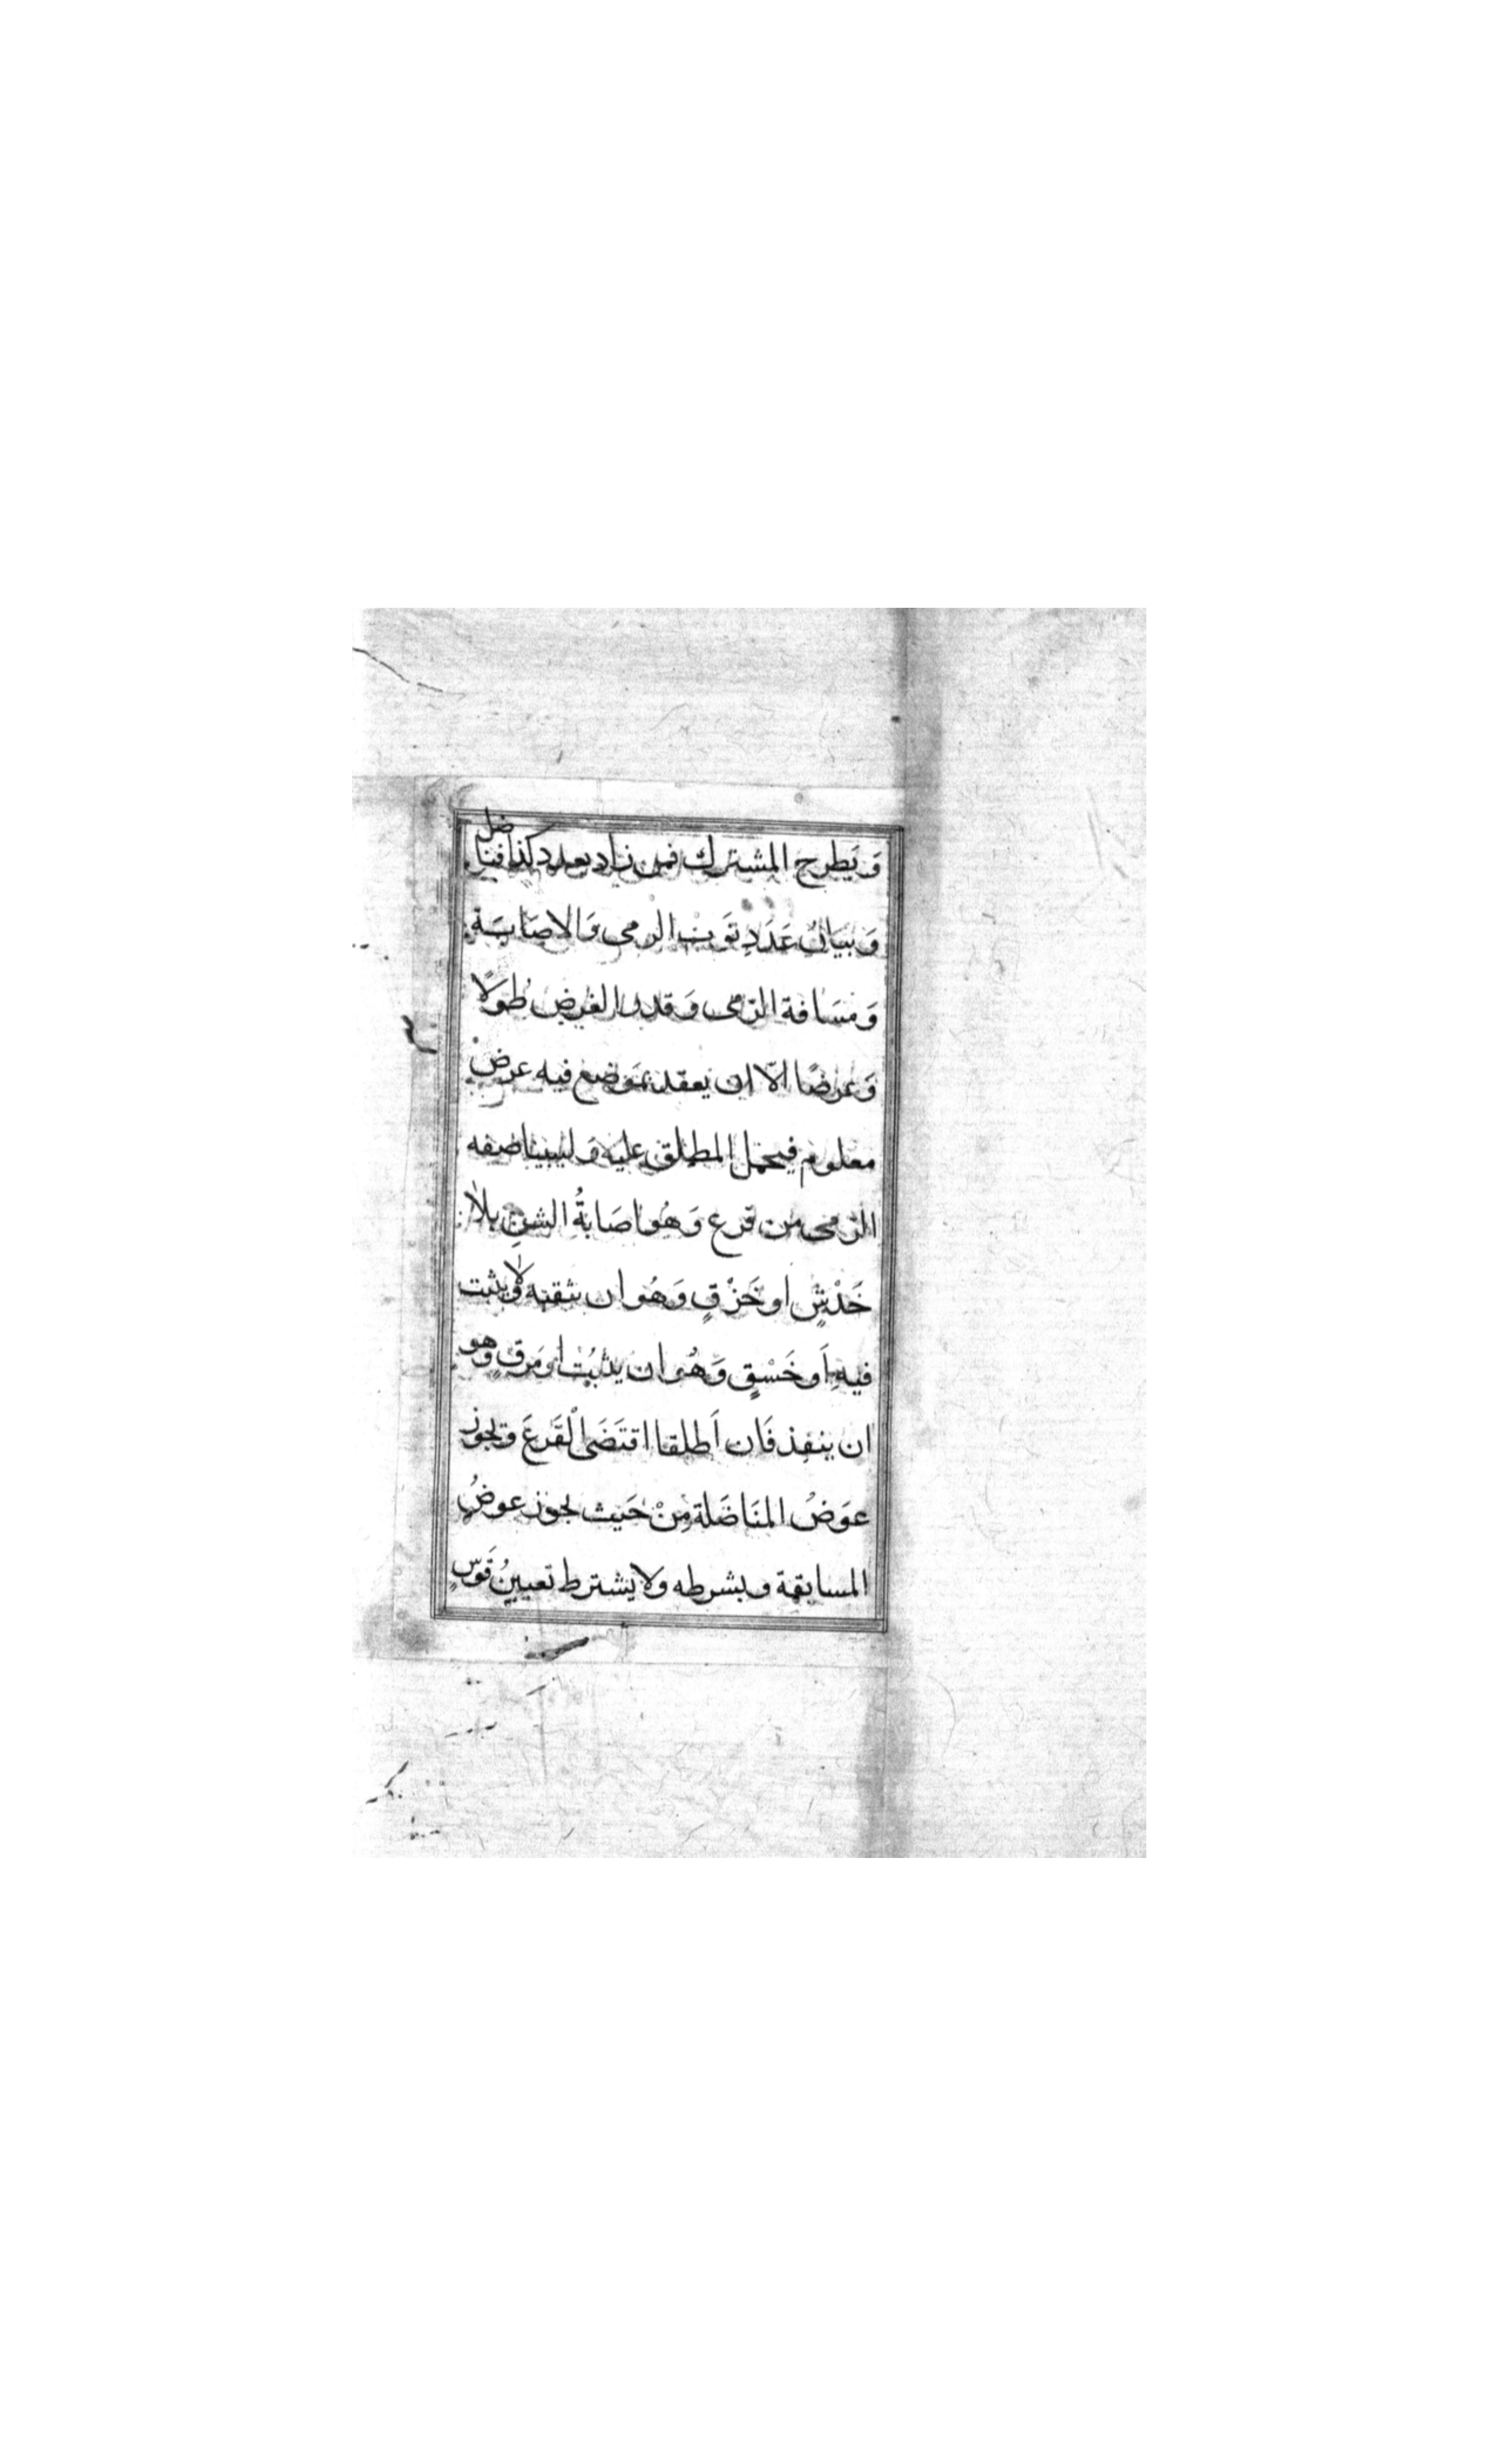 وَيَطرح المشترك فمن زاد بعدد كذا فناضل
وَبَيَانُ عَدَدِ نوَب الرمى وَالاصَابَة
وَمَسَافة الرّمى وَقدر الغرض طُولًا
وَعَرضًا الّا ان يعقد بموَضع فيه عرض
معلوم فيحمل المطلق عليه وَليبينا صفه
الرّمى من قرع وَهُو اصَابةُ الشنِ بلا
خَدْشٍ او خَزْقٍ وَهُو ان يثقبه ولا يثبت
فيهِ اَو خَسْقٍ وَهُو ان يثبُت او مَرقٍ وهو
ان ينفذ فَان اَطلقا اقتَضَى الْقَرعَ ويجوز
عوَضُ المنَاضَلة مِنْ حَيث يجوز عوضُ
المسابقة وبشرطه ولا يشترط تعيينُ قَوسٍ